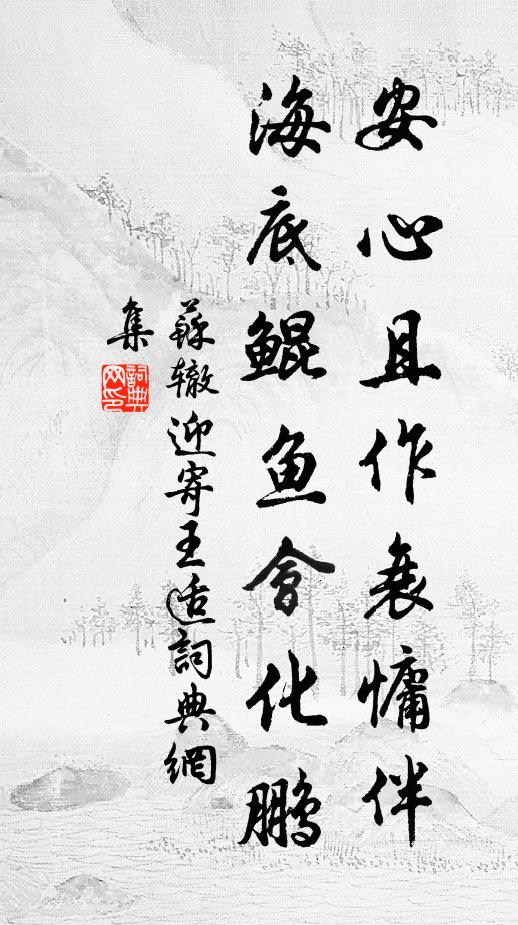 安心且作衰慵伴
海底鲲鱼會化鹏
蘇辙迎寄王适詞典網
集
詞典網印